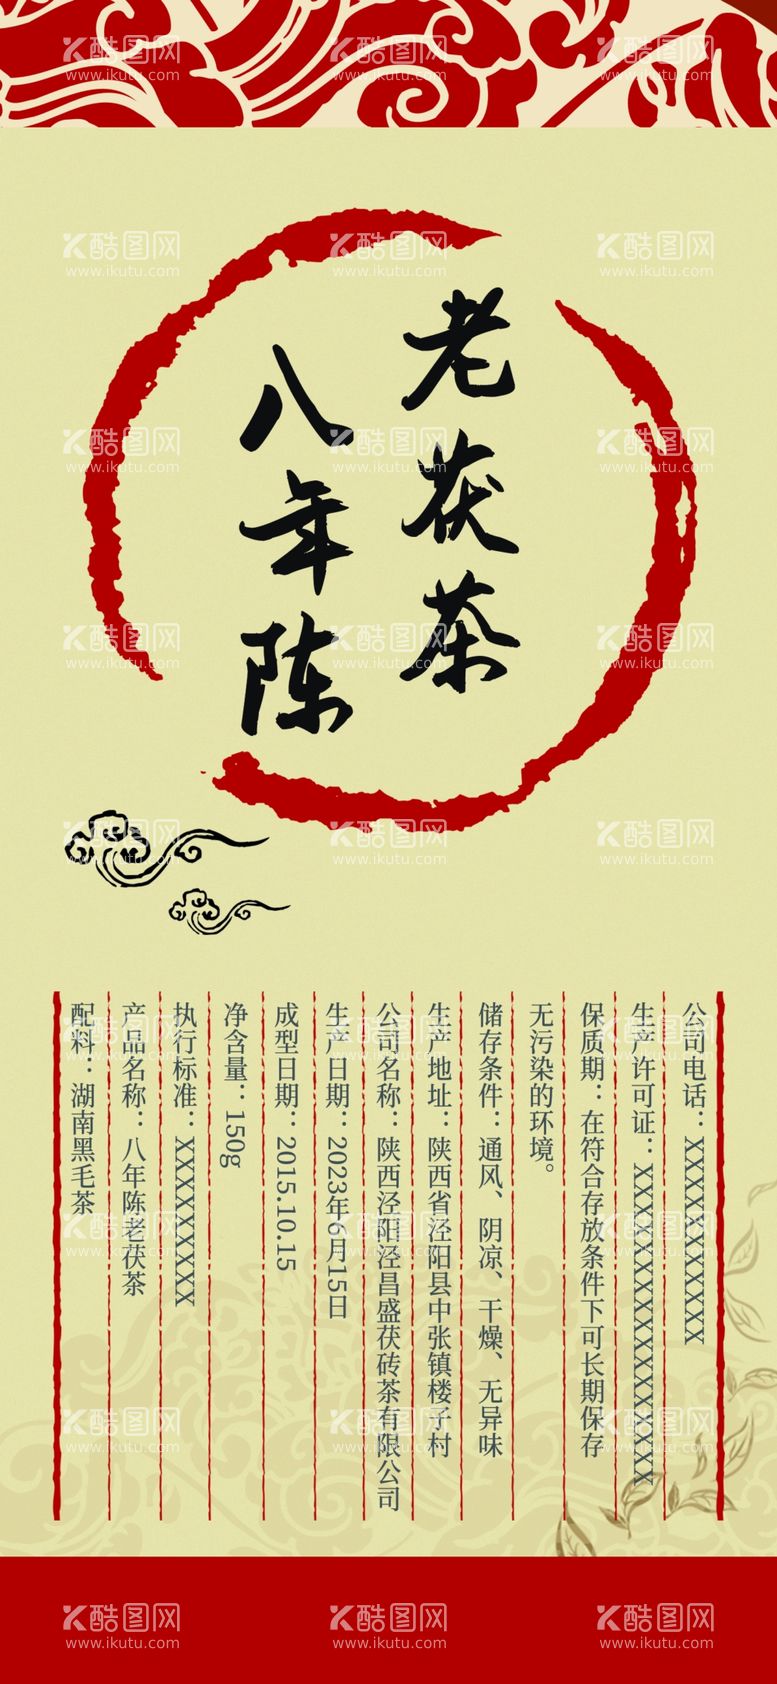 老茯茶
八年陈
配料：湖南黑毛茶
产品名称：八年陈老茯茶
执行标准：XXXXXXXXX
净含量：150g
成型日期：2015.10.15
生产日期：2023年6月15日
公司名称：陕西泾阳泾昌盛茯砖茶有限公司
生产地址：陕西省泾阳县中张镇楼子村
储存条件：通风、阴凉、干燥、无异味
无污染的环境。
保质期：在符合存放条件下可长期保存
生产许可证：XXXXXXXXXXXXXXXXX
公司电话：XXXXXXXXXXX
酷图网
www.ikutu.com